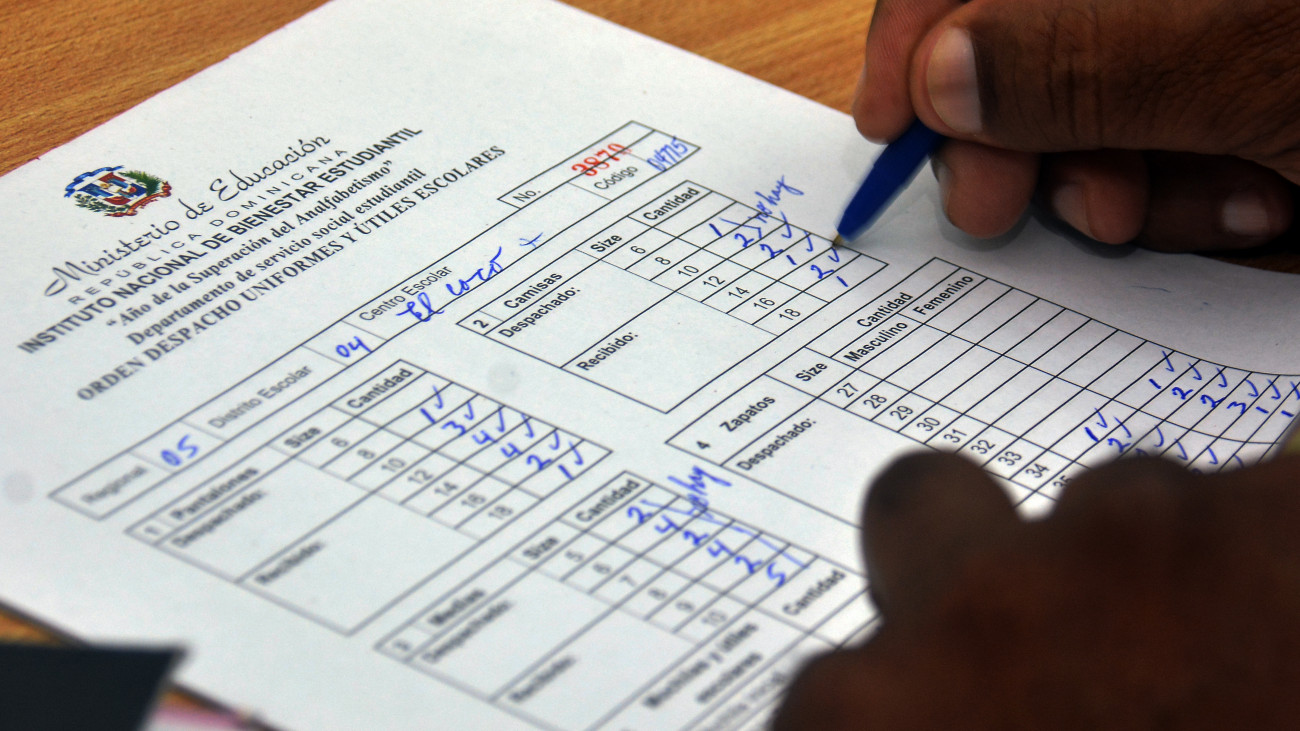 Ministerio de Educación
REPÚBLICA DOMINICANA
INSTITUTO NACIONAL DE BIENESTAR ESTUDIANTIL
"Año de la Superación del Analfabetismo"
Departamento de servicio social estudiantil
ORDEN DESPACHO UNIFORMES Y ÚTILES ESCOLARES
No. 3870
Código 04775
Regional 05 Distrito Escolar 04 Centro Escolar El Coco
1 Pantalones Size Cantidad
Despachado:
Recibido:
6 1 ✓
8 3 ✓
10 4 ✓
12 4 ✓
14 2 ✓
16 1 ✓
18
2 Camisas Size Cantidad
Despachado:
Recibido:
6 1 No hay
8 2
10 2 ✓
12 1 ✓
14 2 ✓
16 1
18
3 Medias Size Cantidad
Despachado:
Recibido:
5 2 No hay
6 4
7 2
8 4
9 2
10 5
4 Zapatos Size Cantidad
Masculino Femenino
Despachado:
27
28
29
30
31
32
33
34
35
1 ✓
2 ✓
1 ✓
2 ✓
2 ✓
3 ✓
1 ✓
1
Mochilas y útiles escolares Cantidad